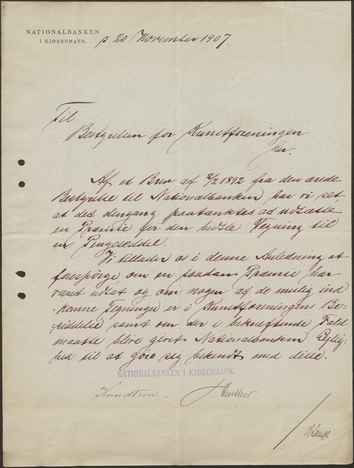 NATIONALBANKEN
I KJØBENHAVN.
p 20 November 1907.
Til
Bestyrelsen for Kunstforeningen
her.
Af et Brev af 8/2 1842 fra den ærede
Bestyrelse til Nationalbanken har vi set,
at det dengang paatænktes at udsætte
en Præmie for den bedste Tegning til
en Pengeseddel.
Vi tillader os i denne Anledning at
forespørge om en saadan Præmie har
været udsat og om nogen af de mulig ind-
komne Tegninger er i Kunstforeningens Be-
siddelse samt om der i bekræftende Fald
maatte blive givet Nationalbanken Lejlig-
hed til at gøre sig bekendt med disse.
NATIONALBANKEN I KJØBENHAVN.